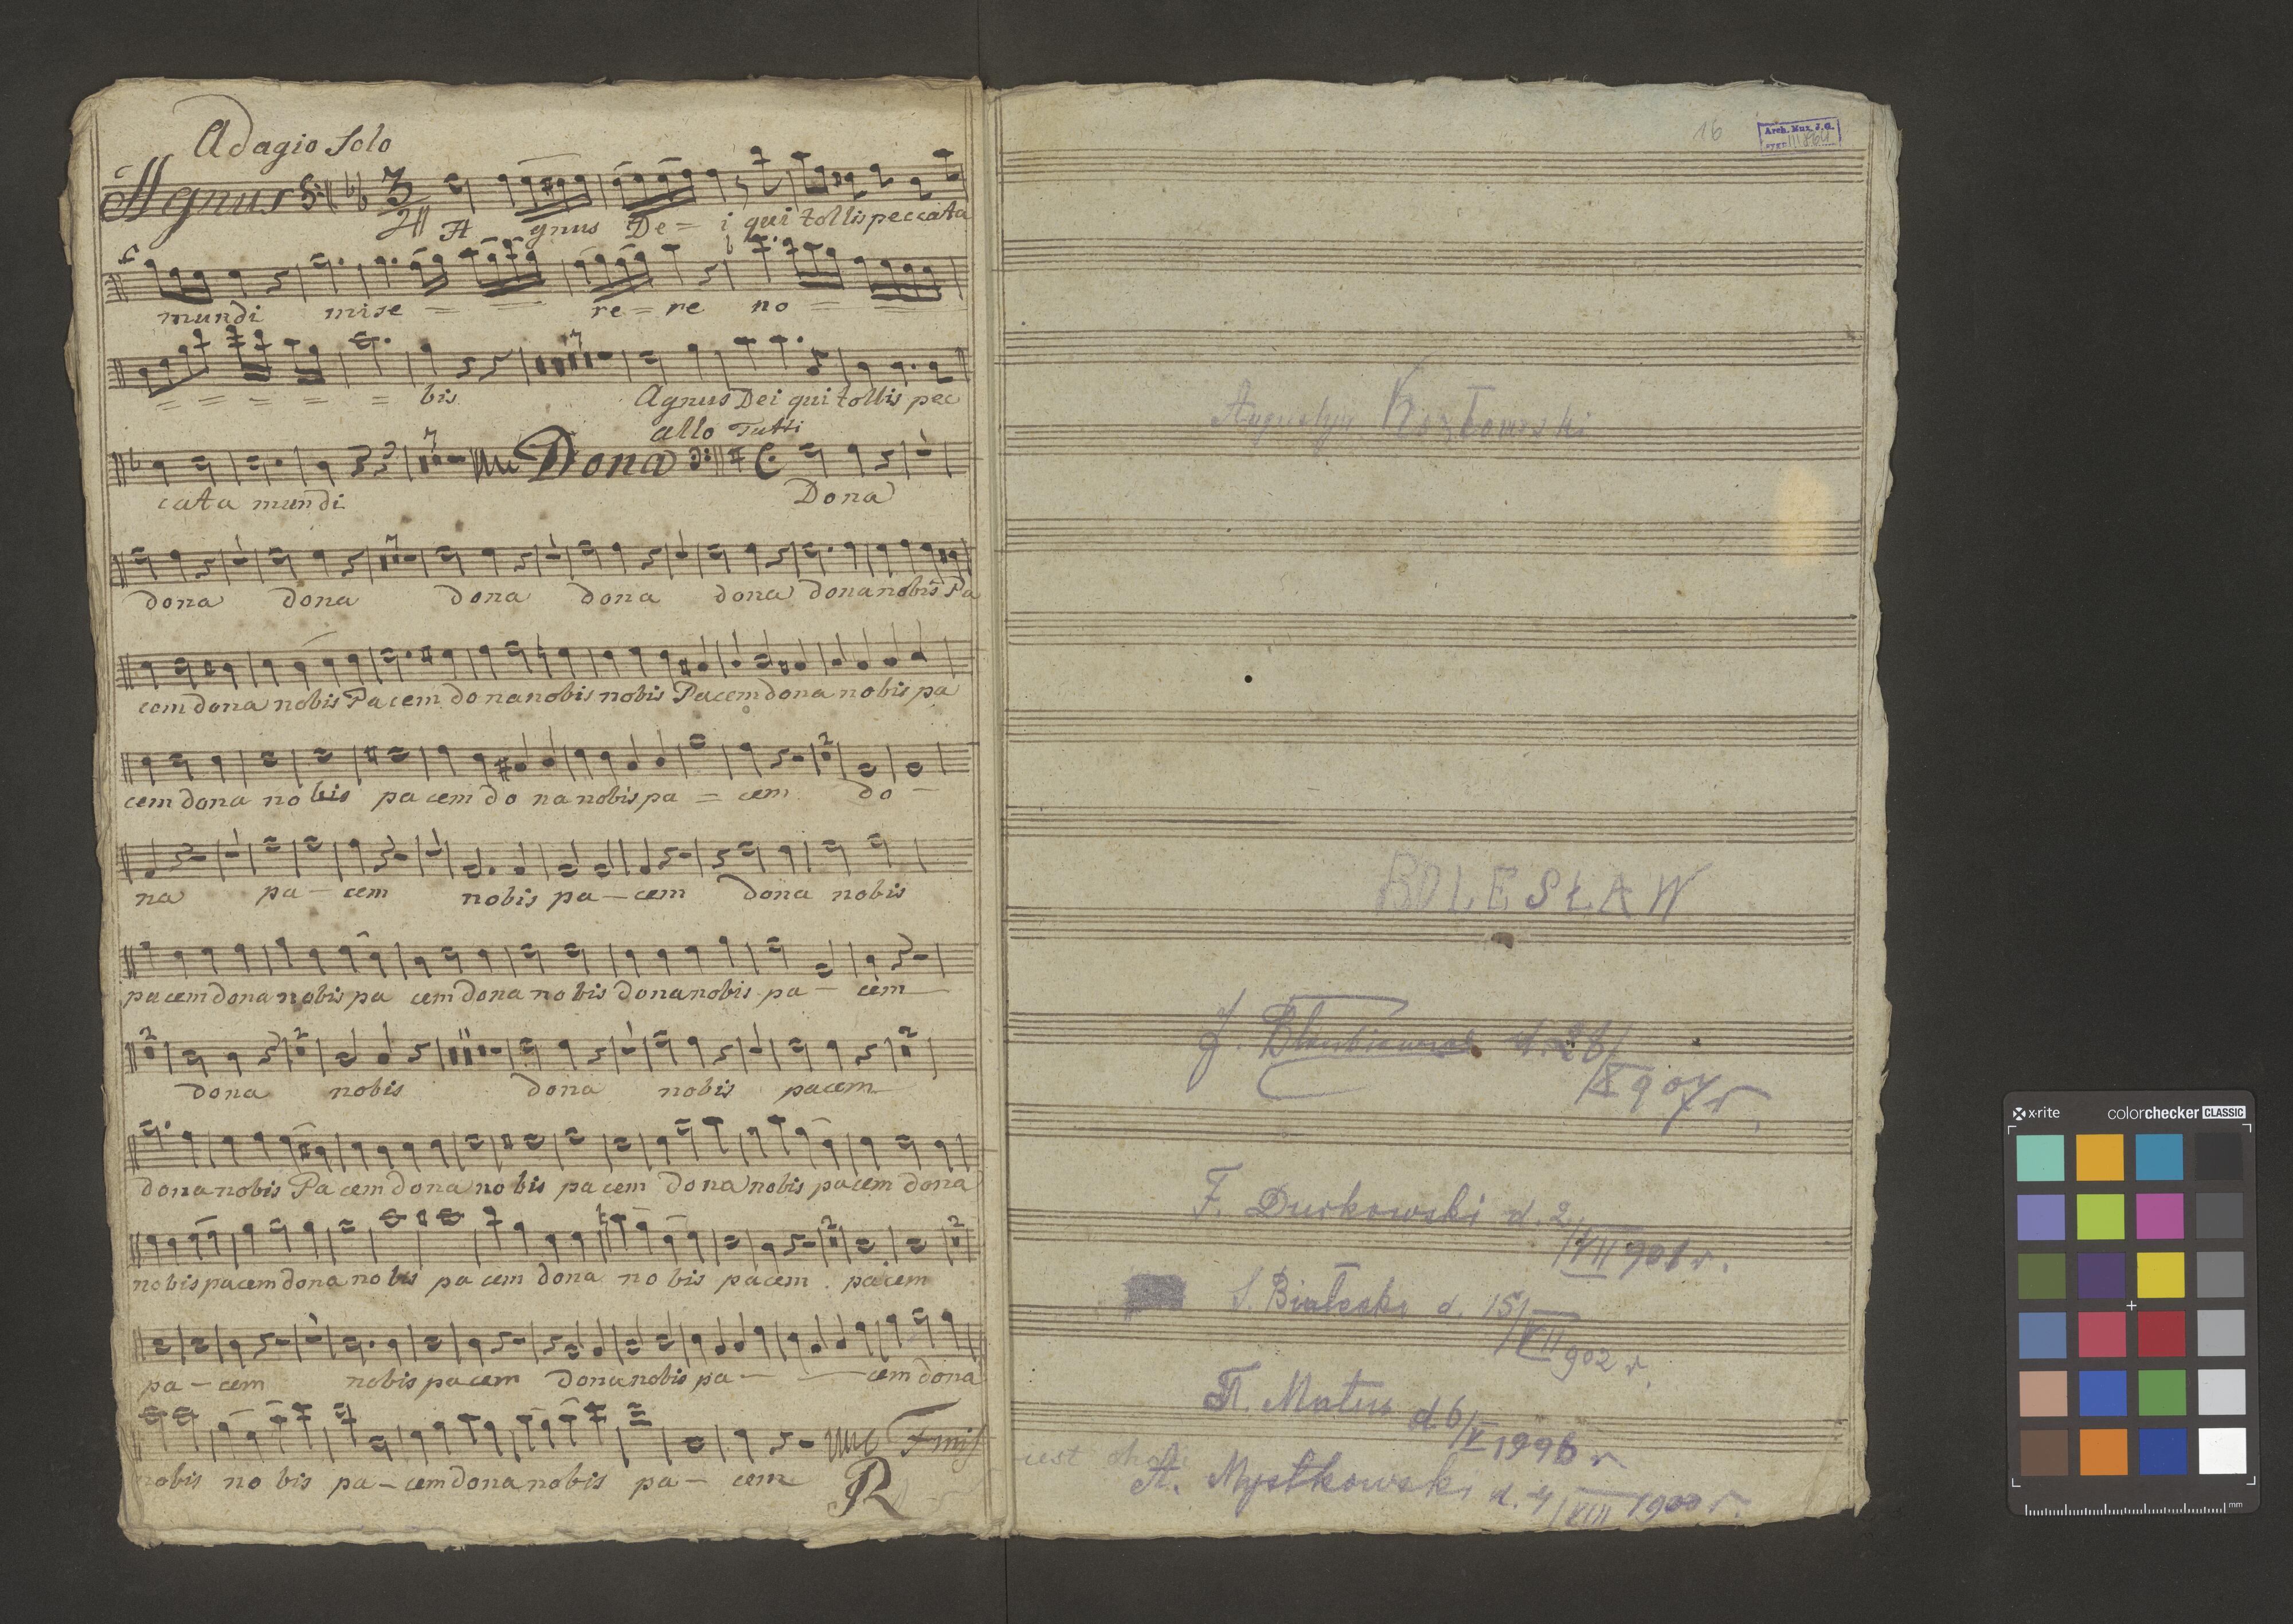 Adagio Solo
Agnus
A gnus De = i qui tollis peccata
mundi mise = = re = re no = =
= = = = = bis Agnus Dei qui tollis pec
allo Tutti
Dona
cata mundi Dona
dona dona dona dona dona dona nobis Pa
cem dona nobis Pacem dona nobis nobis Pacem dona nobis pa
cem dona nobis pacem do na nobis pa = cem do -
na pa - cem nobis pa - cem dona nobis
pacem dona nobis pa cem dona nobis dona nobis pa - cem
dona nobis dona nobis pacem
dona nobis Pacem dona nobis pacem dona nobis pacem dona
nobis pacem dona nobis pacem dona nobis pacem pacem
pa - cem nobis pacem dona nobis pa - - cem dona
nobis nobis pa - cem dona nobis pa - cem
Finis
R
16
Arch. Muz. J. G.
sygn.
Augustyn Kozłowski
BOLESŁAW
J. d. 26/X 907 r.
F. Durkowski d. 2/VII 901 r.
S. Białecki d. 15/VII 902 r.
Matus d. 6/V 1996 r
A. Mystkowski d. 4/VIII 1900 r.
x-rite
colorchecker CLASSIC
mm